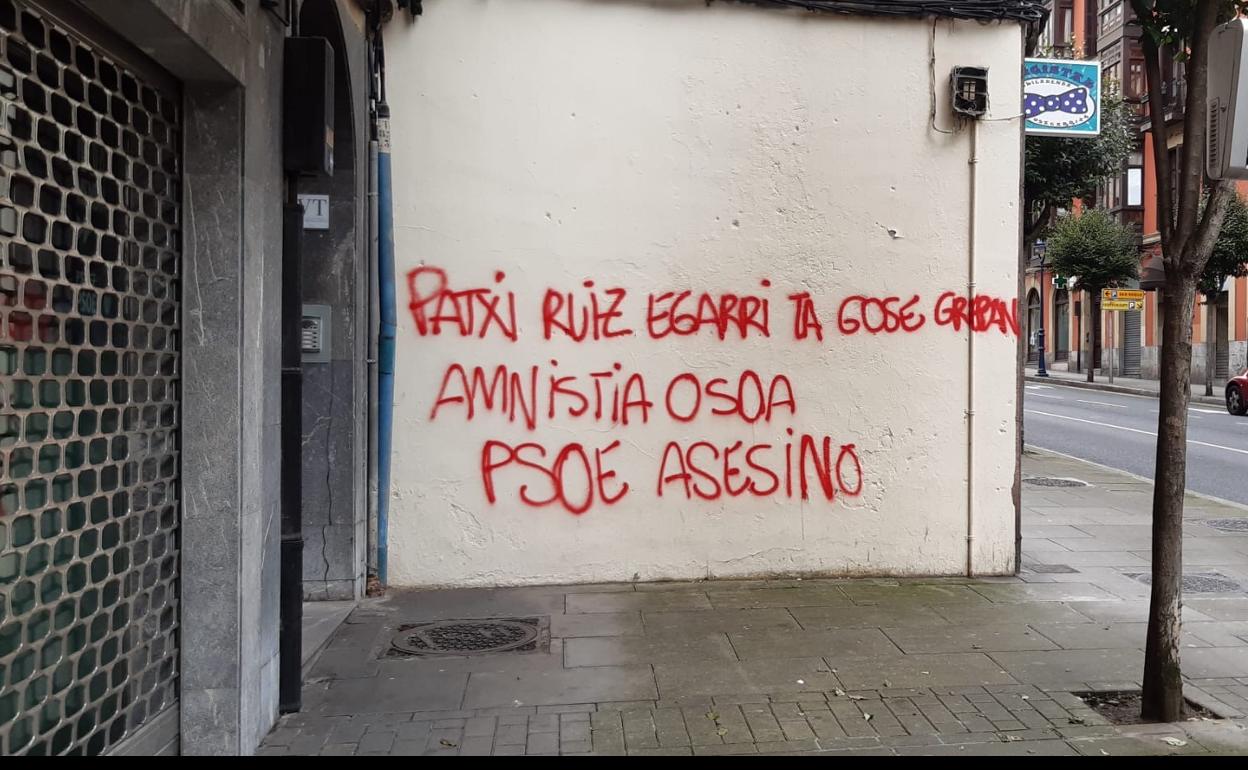 VT
PATXI RUIZ EGARRI TA GOSE GREBAN
AMNISTIA OSOA
PSOE ASESINO